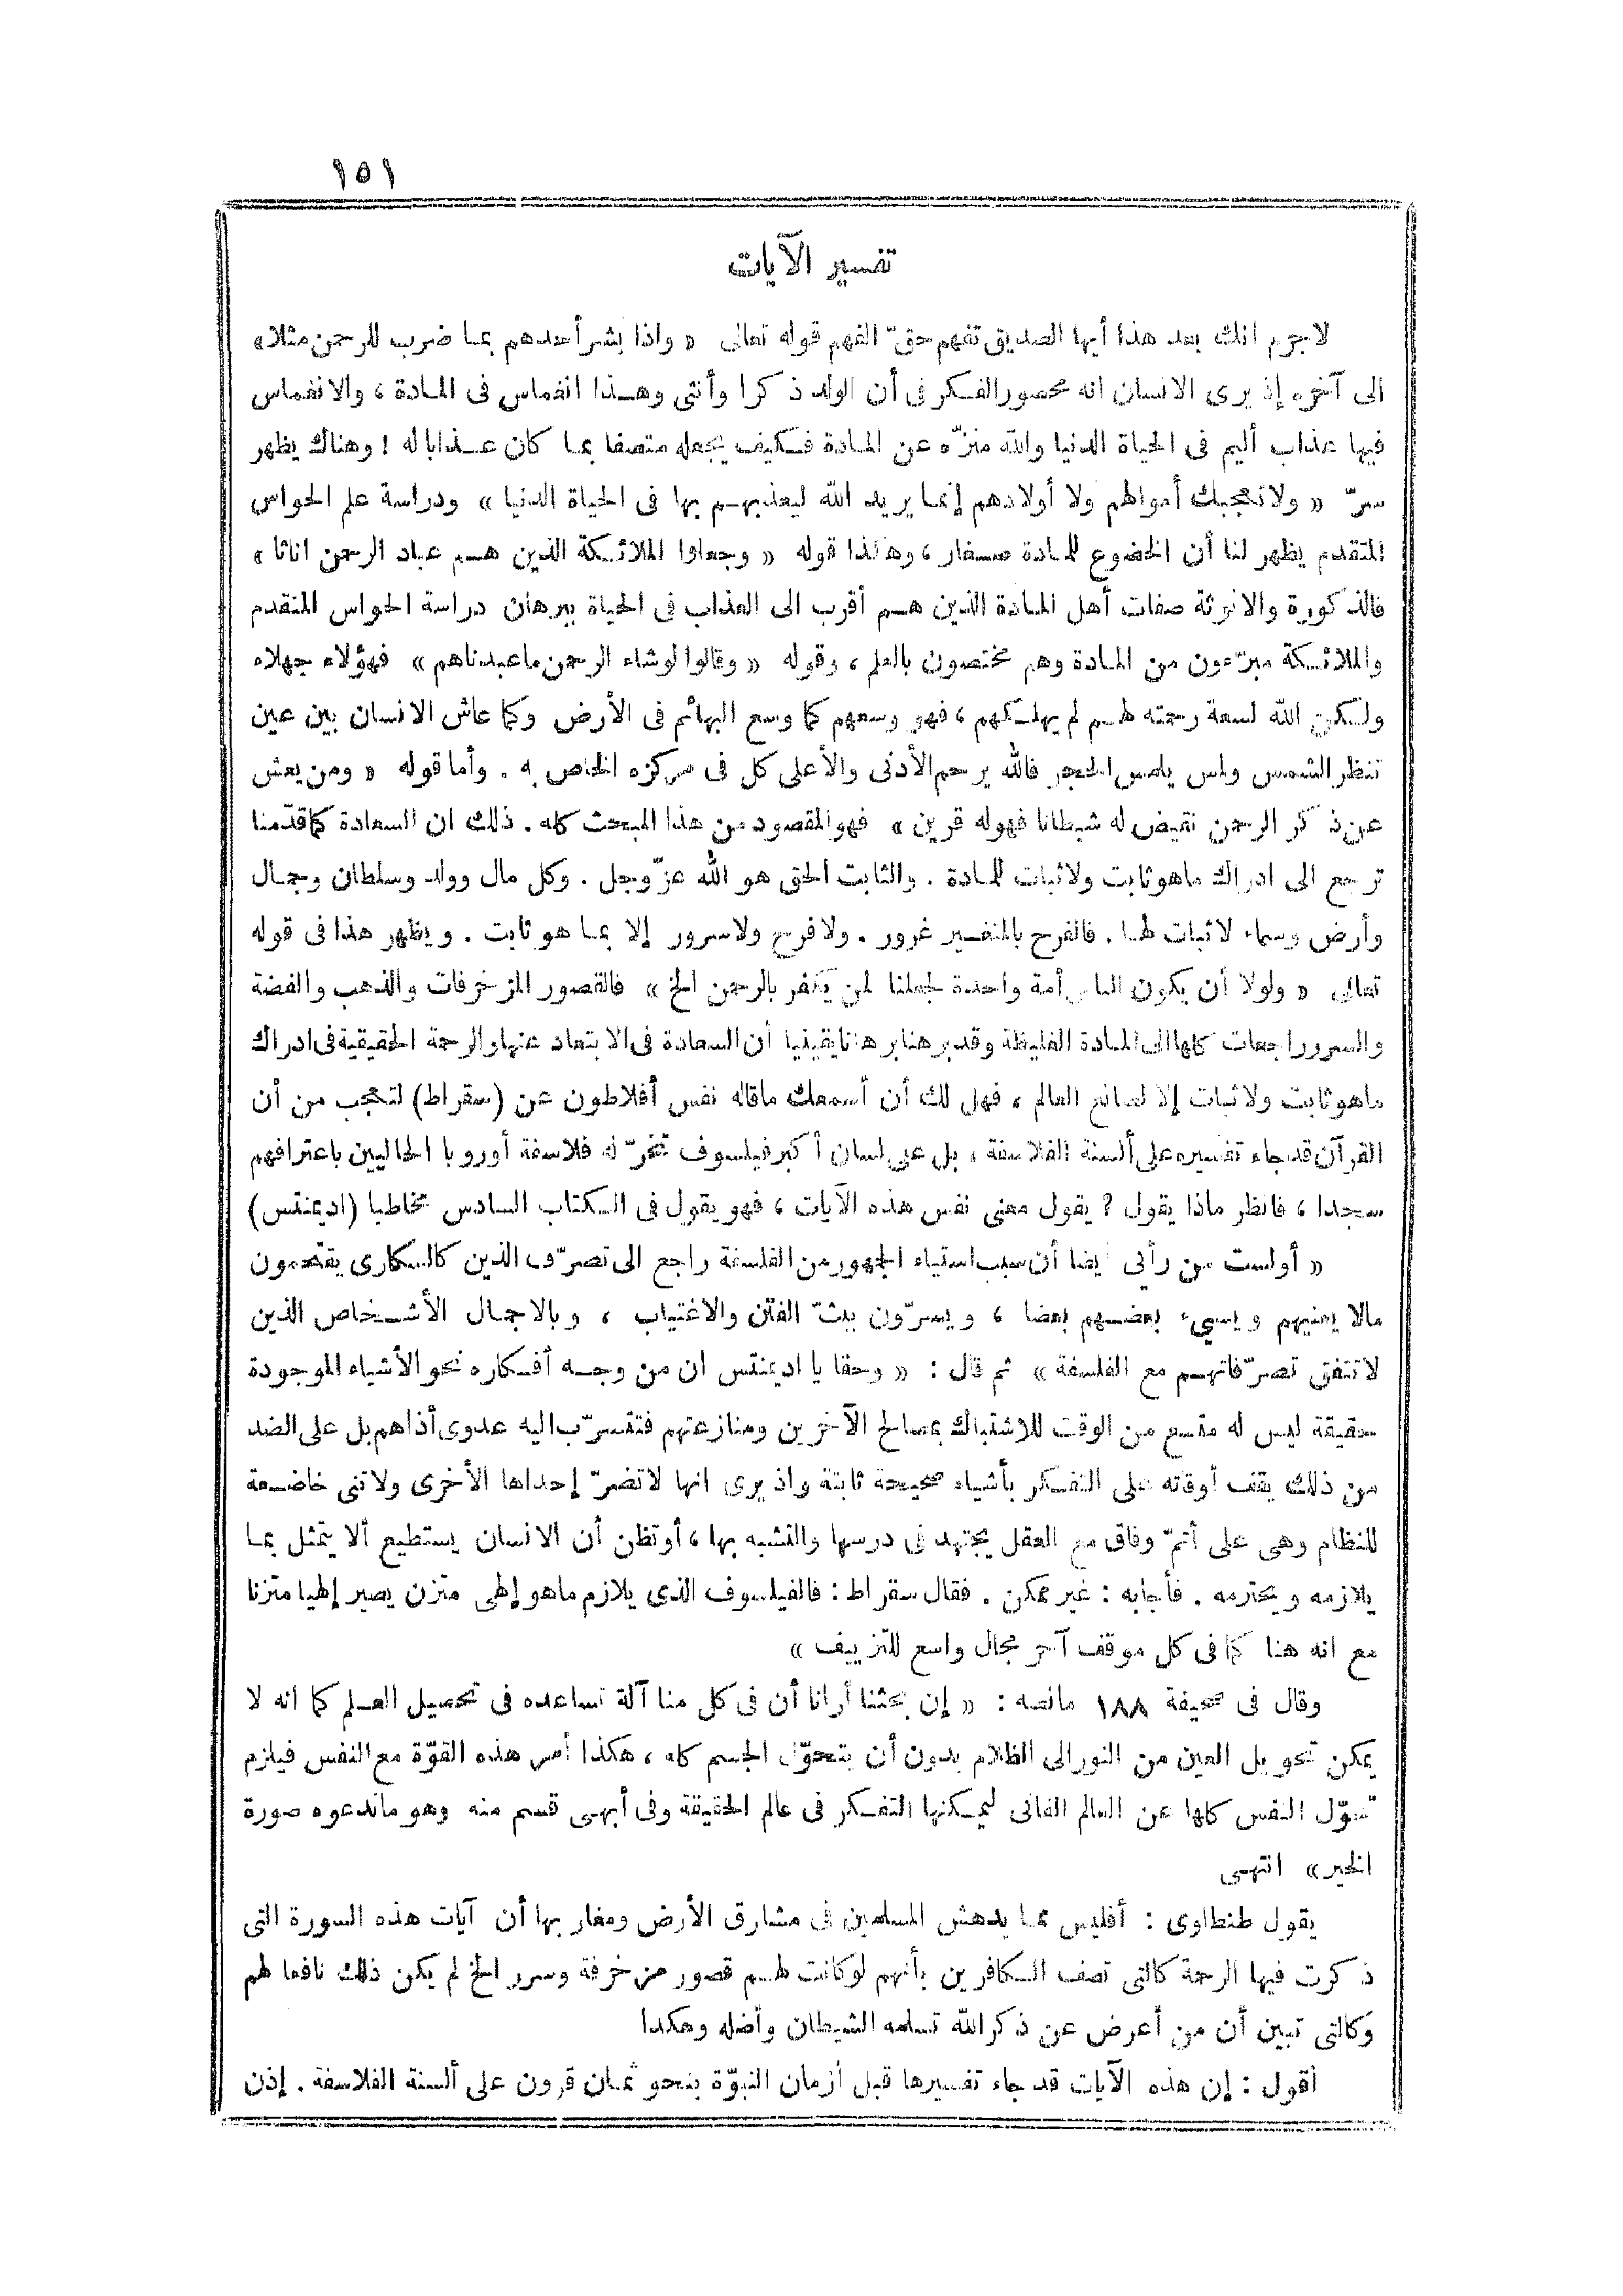 ١٥١
تفسير الآيات
لاجرم انك بعد هذا أيها الصديق تفهم حقّ الفهم قوله تعالى « واذا بشر أحدهم بما ضرب للرحمن مثلا »
الى آخره إذ يرى الانسان انه محصور الفكر فى أن الولد ذكرا وأنثى وهذا انغماس فى المادة ، والانغماس
فيها عذاب أليم فى الحياة الدنيا والله منزّه عن المادة فكيف يجعله متصفا بما كان عذابا له ! وهناك يظهر
سرّ « ولا تعجبك أموالهم ولا أولادهم إنما يريد الله ليعذبهم بها فى الحياة الدنيا » ودراسة علم الحواس
المتقدم يظهر لنا أن الخضوع للمادة صغار ، وهكذا قوله « وجعلوا الملائكة الذين هم عباد الرحمن اناثا »
فالذكورة والانوثة صفات أهل المادة الذين هم أقرب الى العذاب فى الحياة ببرهان دراسة الحواس المتقدم
والملائكة مبرّءون من المادة وهم مختصون بالعلم ، وقوله « وقالوا لوشاء الرحمن ما عبدناهم » فهؤلاء جهلاء
ولكن الله لسعة رحمته لهم لم يهلكهم ، فهو وسعهم كما وسع البهائم فى الأرض وكما عاش الانسان بين عين
تنظر الشمس ولمس يلمس الحجر فالله يرحم الأدنى والأعلى كل فى مركزه الخاص به . وأما قوله « ومن يعش
عن ذكر الرحمن نقيض له شيطانا فهو له قرين » فهو المقصود من هذا المبحث كله . ذلك ان السعادة كما قدّمنا
ترجع الى ادراك ماهو ثابت ولا ثبات للمادة . والثابت الحق هو الله عزّ وجل . وكل مال وولد وسلطان وجمال
وأرض وسماء لا ثبات لها . فالفرح بالمتغير غرور . ولا فرح ولا سرور إلا بما هو ثابت . ويظهر هذا فى قوله
تعالى « ولولا أن يكون الناس أمة واحدة لجعلنا لمن يكفر بالرحمن الخ » فالقصور المزخرفات والذهب والفضة
والسرور راجعات كلها الى المادة الغليظة وقد برهنا برهانا يقينيا أن السعادة فى الابتعاد عنها والرحمة الحقيقية فى ادراك
ماهو ثابت ولا ثبات إلا لصانع العالم ، فهل لك أن أسمعك ماقاله نفس أفلاطون عن (سقراط) لتعجب من أن
القرآن قد جاء تفسيره على ألسنة الفلاسفة ، بل على لسان أكبر فيلسوف تخرّ له فلاسفة أوروبا الحاليين باعترافهم
سجدا ، فانظر ماذا يقول ? يقول معنى نفس هذه الآيات ، فهو يقول فى الكتاب السادس مخاطبا (اديمنتس)
« أولست من رأيى أيضا أن سبب استياء الجمهور من الفلسفة راجع الى تصرّف الذين كالسكارى يقتحمون
مالا يعنيهم ويسىء بعضهم بعضا ، ويسرّون ببثّ الفتن والاغتياب ، وبالاجمال الأشخاص الذين
لا تتفق تصرّفاتهم مع الفلسفة » ثم قال : « وحقا يا اديمنتس ان من وجه أفكاره نحو الأشياء الموجودة
حقيقة ليس له متسع من الوقت للاشتباك بمصالح الآخرين ومنازعتهم فتتسرّب اليه عدوى أذاهم بل على الضد
من ذلك يقف أوقته على التفكر بأشياء صحيحة ثابتة واذ يرى انها لا تضرّ إحداها الأخرى ولا تنى خاضعة
للنظام وهى على أتمّ وفاق مع العقل يجتهد فى درسها والتشبه بها ، أوتظن أن الانسان يستطيع ألا يتمثل بما
يلازمه ويحترمه . فأجابه : غير ممكن . فقال سقراط : فالفيلسوف الذى يلازم ماهو إلهى متزن يصير إلهيا متزنا
مع انه هنا كما فى كل موقف آخر مجال واسع للتزييف »
وقال فى صحيفة ١٨٨ مانصه : « إن بحثنا أرانا أن فى كل منا آلة تساعده فى تحصيل العلم كما انه لا
يمكن تحويل العين من النور الى الظلام بدون أن يتحوّل الجسم كله ، هكذا أمر هذه القوّة مع النفس فيلزم
تحوّل النفس كلها عن العالم الفانى ليمكنها التفكر فى عالم الحقيقة وفى أبهى قسم منه وهو ماندعوه صورة
الخير » انتهى
يقول طنطاوى : أفليس مما يدهش المسلمين فى مشارق الأرض ومغاربها أن آيات هذه السورة التى
ذكرت فيها الرحمة كالتى تصف الكافرين بأنهم لو كانت لهم قصور مزخرفة وسرر الخ لم يكن ذلك نافعا لهم
وكالتى تبين أن من أعرض عن ذكر الله تسلمه الشيطان وأضله وهكذا
أقول : إن هذه الآيات قد جاء تفسيرها قبل أزمان النبوّة بنحو ثمان قرون على ألسنة الفلاسفة . إذن